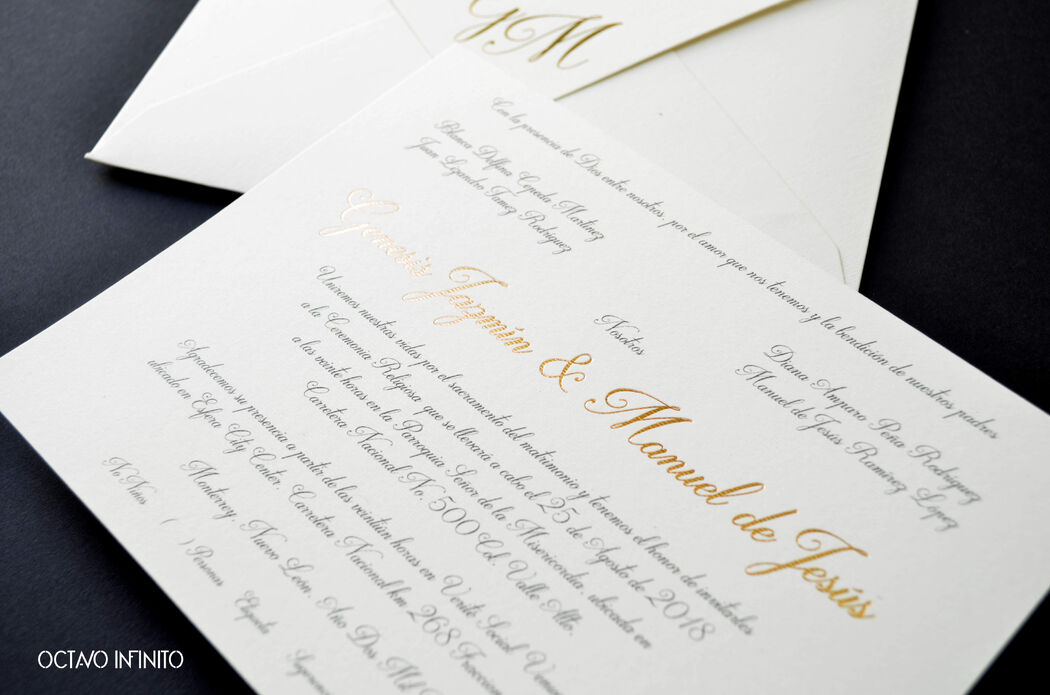 GM
Con la presencia de Dios entre nosotros, por el amor que nos tenemos y la bendición de nuestros padres
Blanca Delfina Cepeda Martínez
Juan Lizandro Tamez Rodríguez
Diana Amparo Peña Rodríguez
Manuel de Jesús Ramírez López
Nosotros
Genesis Jazmín & Manuel de Jesús
Uniremos nuestras vidas por el sacramento del matrimonio y tenemos el honor de invitarles
a la Ceremonia Religiosa que se llevará a cabo el 25 de Agosto de 2018
a las veinte horas en la Parroquia Señor de la Misericordia, ubicada en
Carretera Nacional No. 500 Col. Valle Alto,
Agradecemos su presencia a partir de las veintiún horas en Verité Social Venue
ubicado en Esfera City Center, Carretera Nacional km. 268
Monterrey, Nuevo León, Año Dos Mil
No Niños ( ) Personas Etiqueta
OCTAVO INFINITO